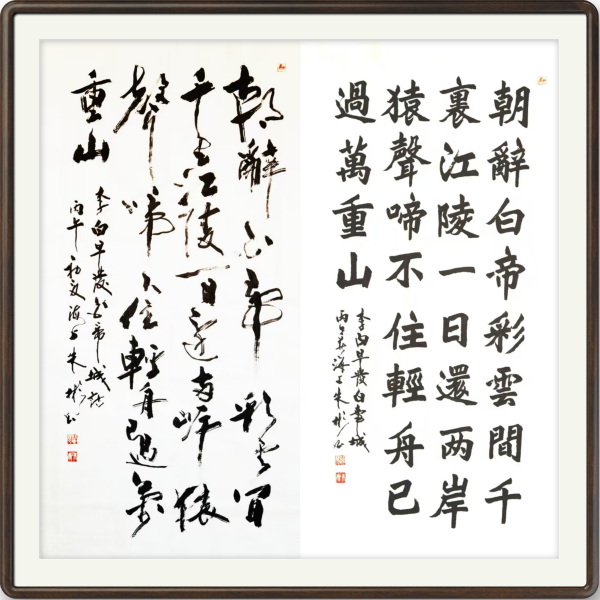 朝辭白帝彩雲間千
裏江陵一日還两岸
猿聲啼不住輕舟已
過萬重山
李白早發白帝城
丙午海上朱彬书
朝辭白帝彩云間
千里江陵一日還两岸猿
聲啼不住輕舟已過萬
重山
李白早發白帝城诗
丙午初夏海上朱彬书